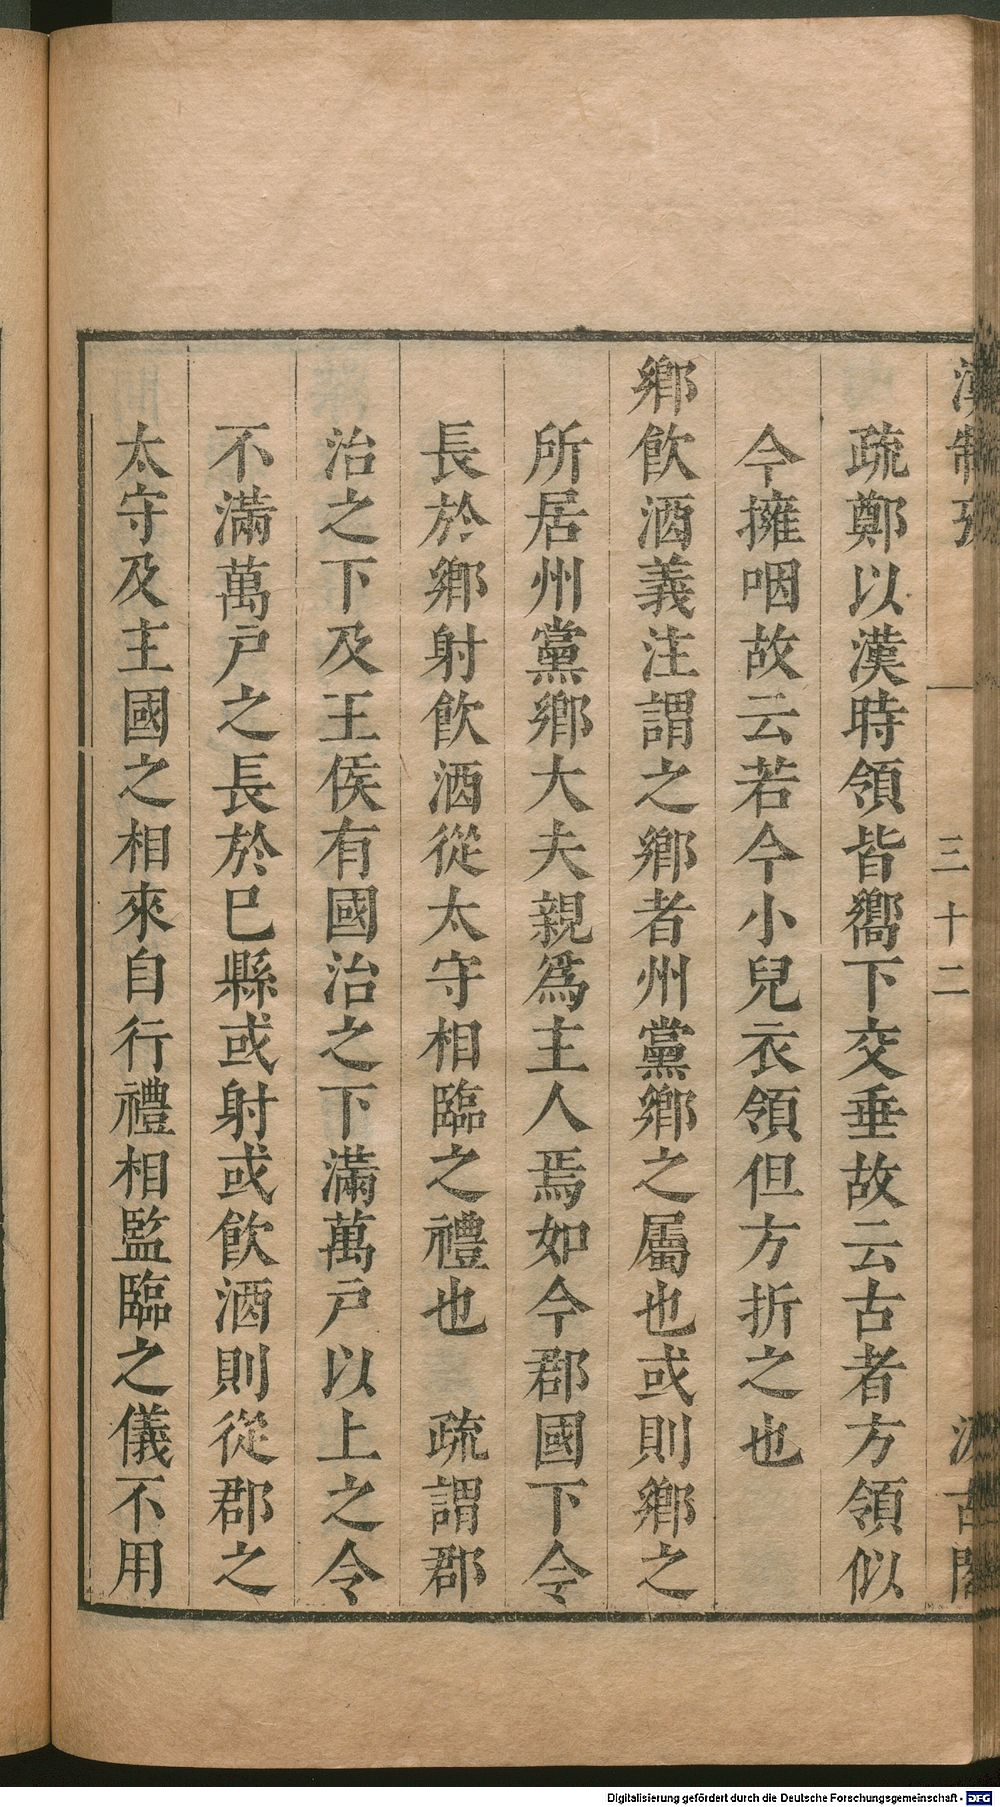 漢制攷 三十二 汲古閣
疏鄭以漢時領皆嚮下交垂故云古者方領似
今擁咽故云若今小兒衣領但方折之也
鄉飲酒義注謂之鄉者州黨鄉之屬也或則鄉之
所居州黨鄉大夫親爲主人焉如今郡國下令
長於鄉射飲酒從太守相臨之禮也 疏謂郡
治之下及王侯有國治之下滿萬戸以上之令
不滿萬戸之長於巳縣或射或飲酒則從郡之
太守及主國之相來自行禮相監臨之儀不用
Digitalisierung gefördert durch die Deutsche Forschungsgemeinschaft - DFG